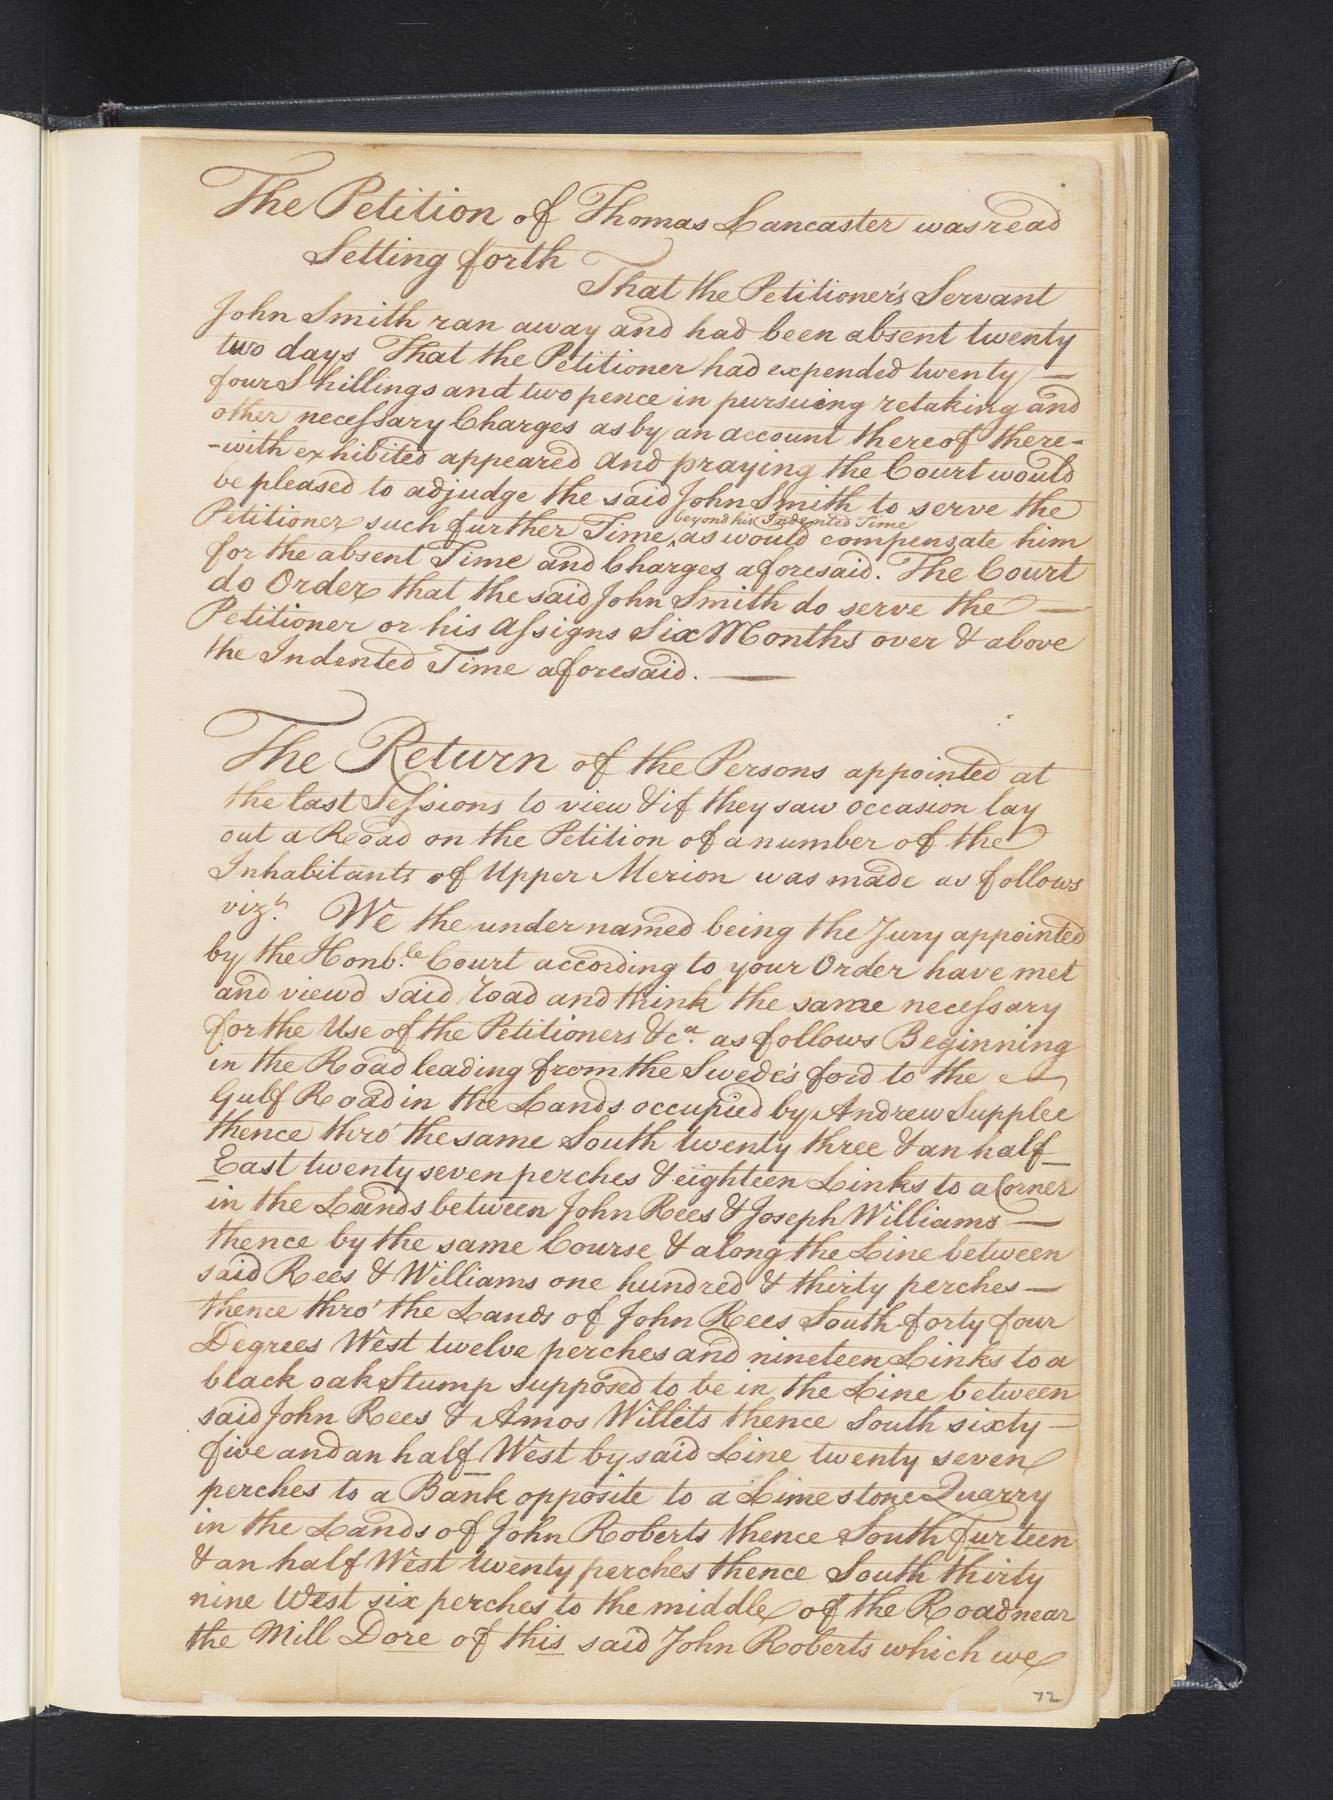 The Petition of Thomas Lancaster was read
Setting forth That the Petitioner's Servant
John Smith ran away and had been absent twenty
two days That the Petitioner had expended twenty —
four Shillings and two pence in pursuing retaking and
other necessary Charges as by an account thereof there-
-with exhibited appeared And praying the Court would
be pleased to adjudge the said John Smith to serve the
beyond his Indented Time
Petitioner such further Time ‸ as would compensate him
for the absent Time and Charges aforesaid. The Court
do Order that the said John Smith do serve the —
Petitioner or his Assigns Six Months over & above
the Indented Time aforesaid. —
The Return of the Persons appointed at
the last Sessions to view & if they saw occasion lay
out a Road on the Petition of a number of the
Inhabitants of Upper Merion was made as follows
vizt. We the under named being the Jury appointed
by the Honb.le Court according to your Order have met
and viewd said road and think the same necessary
for the Use of the Petitioners &ca. as follows Beginning
in the Road leading from the Swede's ford to the —
Gulf Road in the Lands occupied by Andrew Supplee
thence thro' the same South twenty three & an half
East twenty seven perches & eighteen Links to a Corner
in the Lands between John Rees & Joseph Williams —
thence by the same Course & along the Line between
said Rees & Williams one hundred & thirty perches —
thence thro' the Lands of John Rees South forty four
Degrees West twelve perches and nineteen Links to a
black oak Stump supposed to be in the Line between
said John Rees & Amos Willits thence South sixty —
five and an half West by said Line twenty seven
perches to a Bank opposite to a Limestone Quarry
in the Lands of John Roberts thence South furteen
& an half West twenty perches thence South thirty
nine West six perches to the middle of the Road near
the Mill Dore of this said John Roberts which we
72